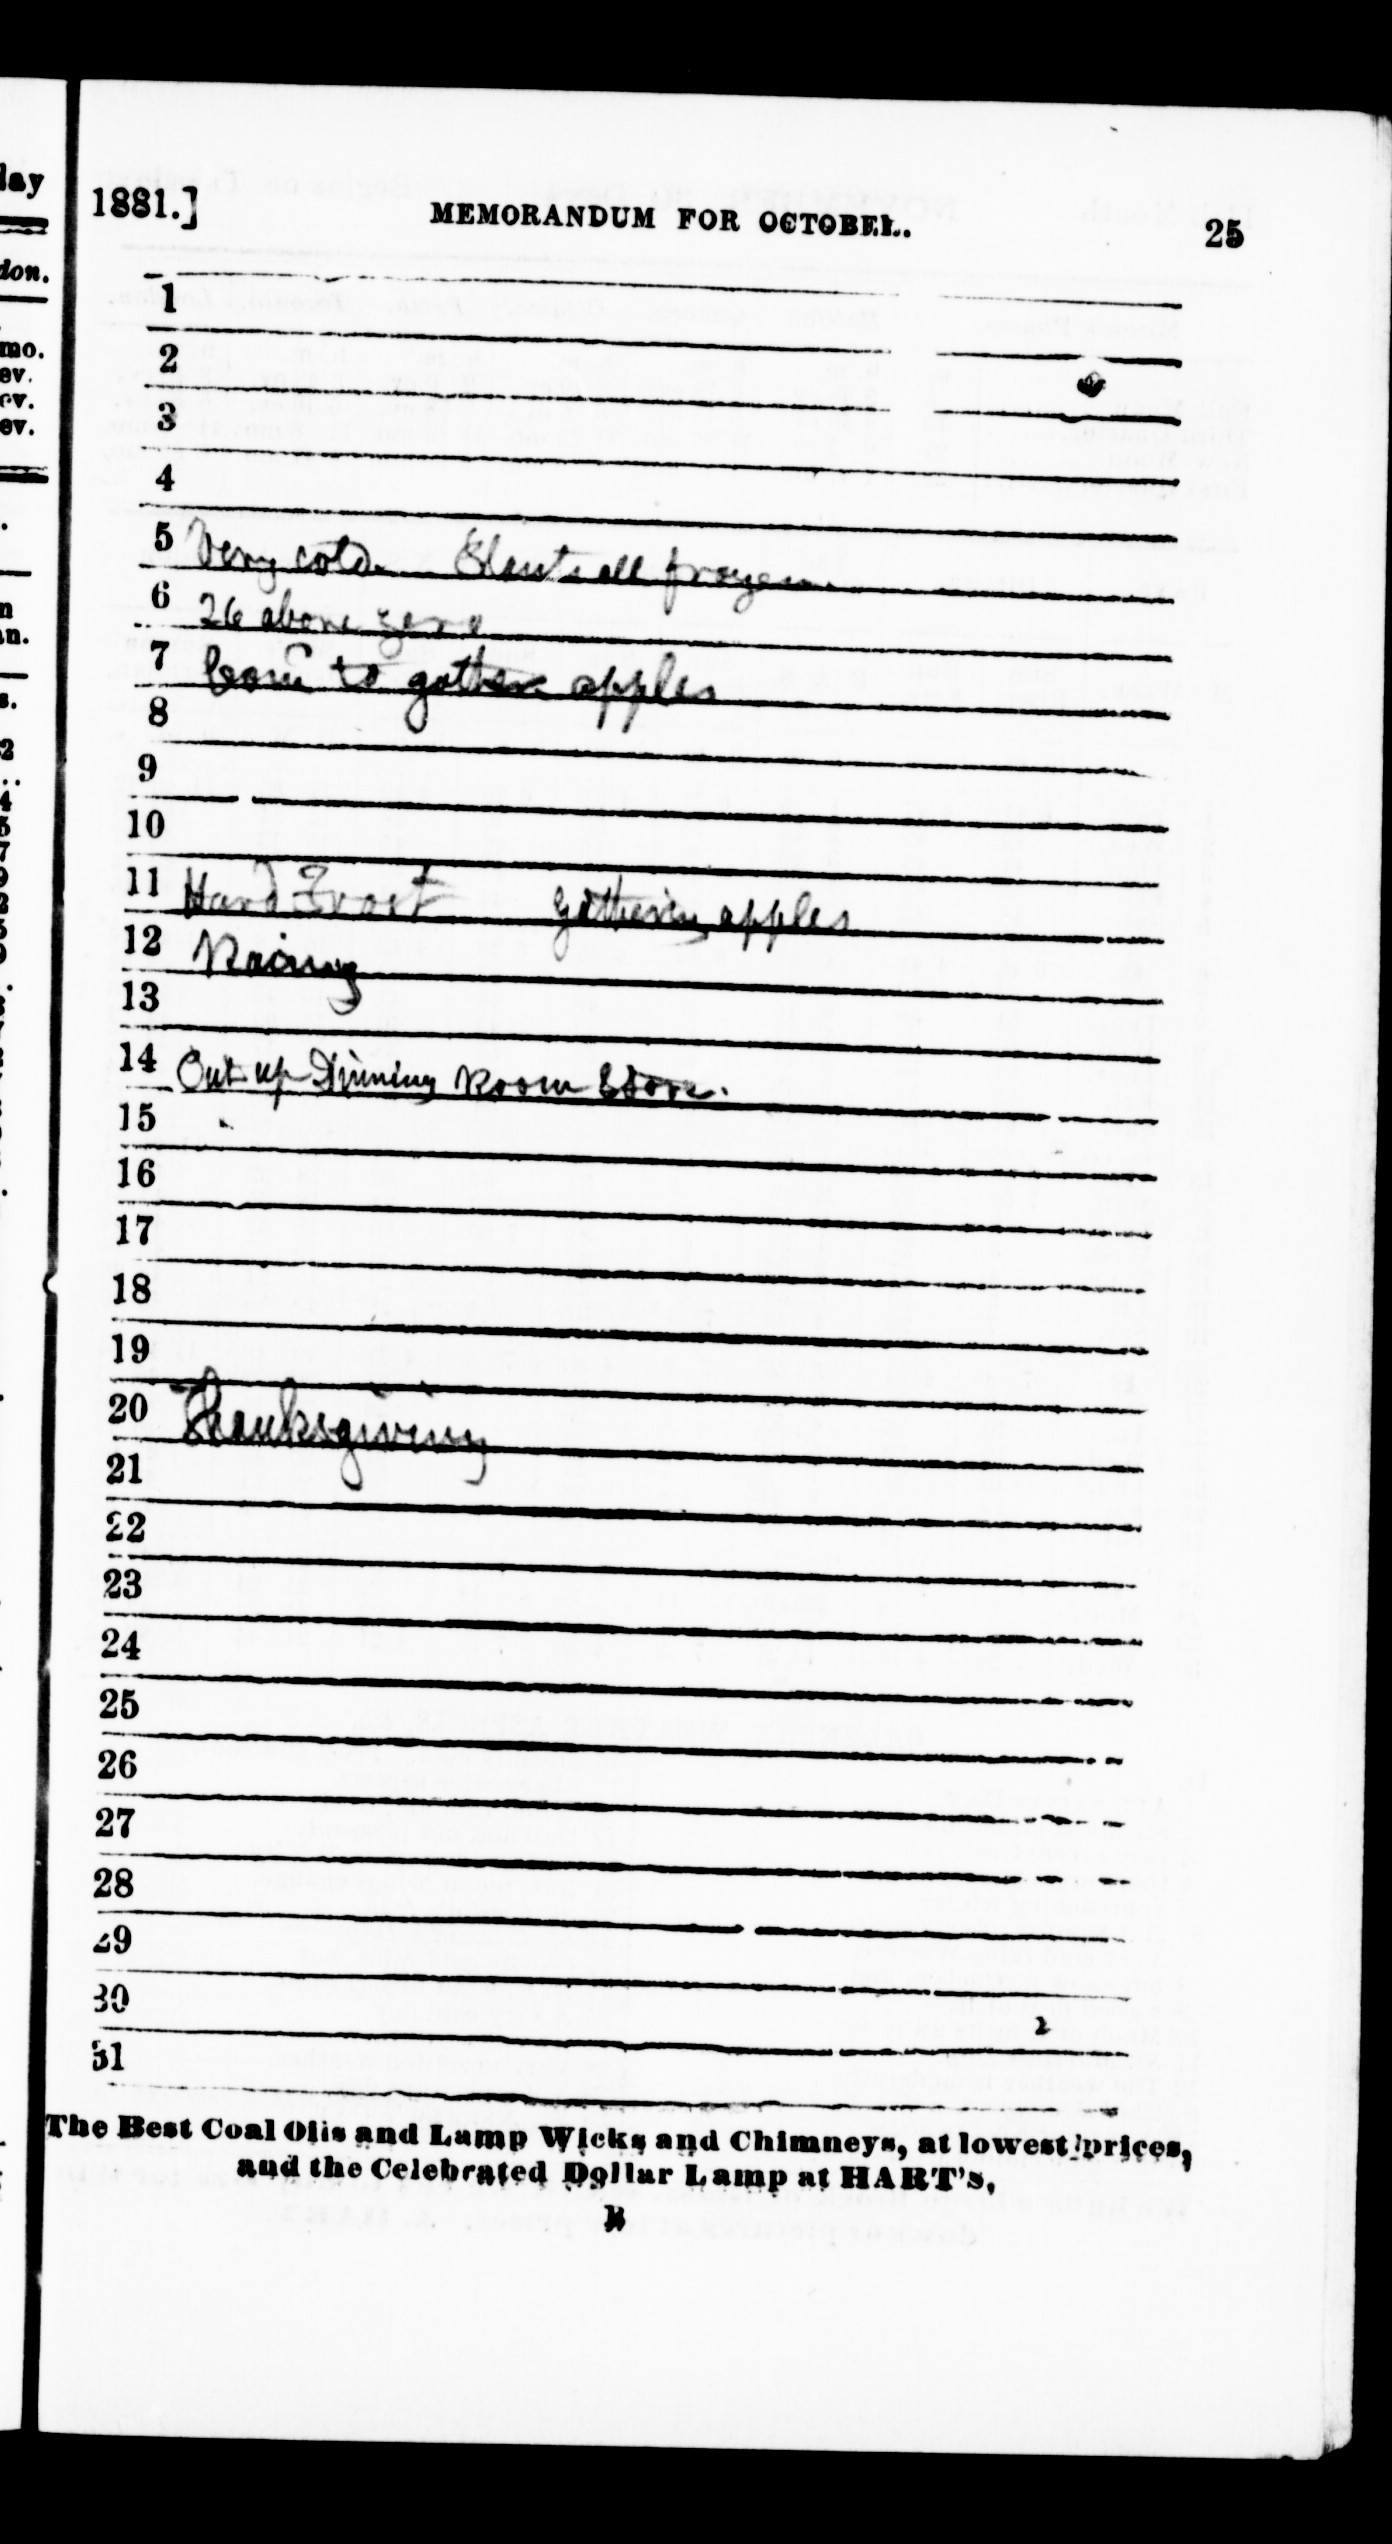 1881.] MEMORANDUM FOR OCTOBER. 25
1
2
3
4
5 Very cold. Plants all frozen
6 26 above zero
7 Com to gather apples
8
9
10
11 Hard Frost gathering apples
12 Raining
13
14 Put up Dinning Room Stove.
15
16
17
18
19
20 Thanksgiving
21
22
23
24
25
26
27
28
29
30
31
The Best Coal Oils and Lamp Wicks and Chimneys, at lowest prices,
and the Celebrated Dollar Lamp at HART's,
B